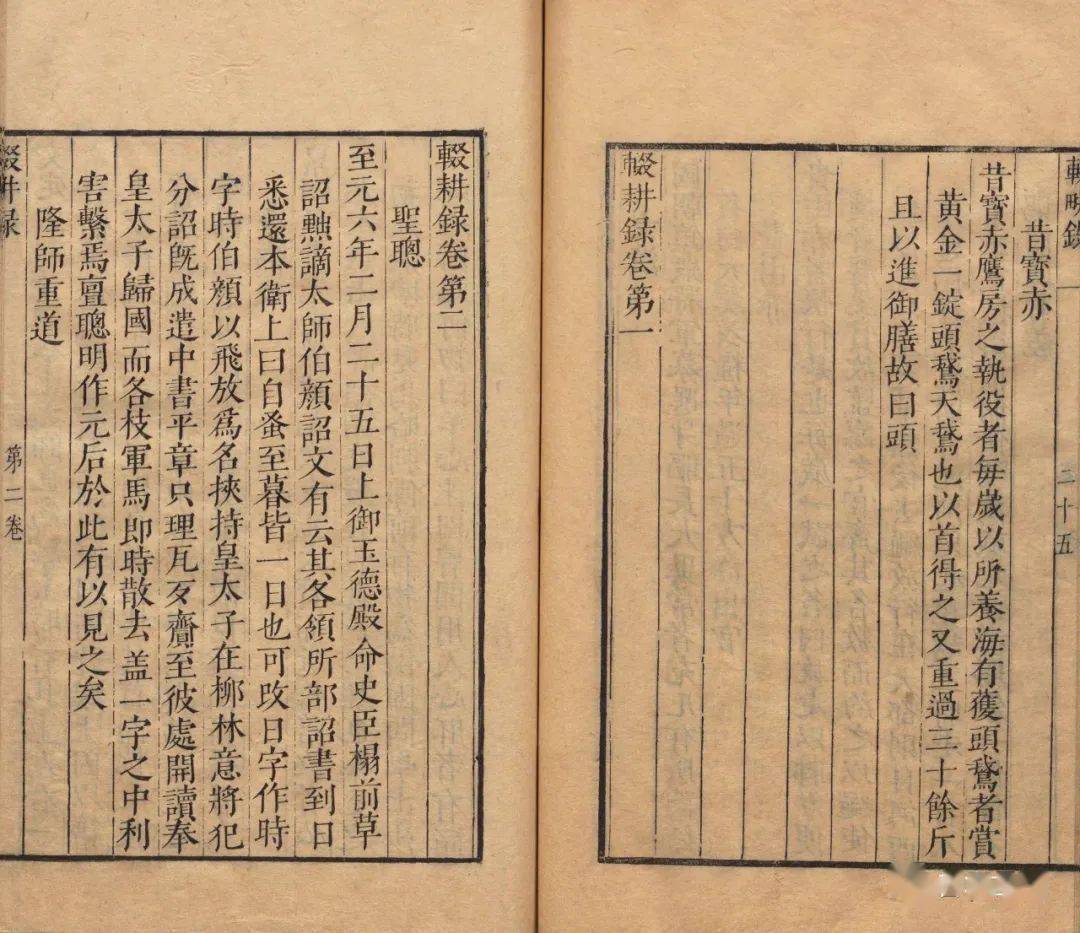 輟耕錄
三十五
昔寶赤
昔寶赤鷹房之執役者每歲以所養海有獲頭鵞者賞
黃金一錠頭鵞天鵞也以首得之又重過三十餘斤
且以進御膳故曰頭
輟耕録卷第一
輟耕録卷第二
聖聰
至元六年二月二十五日上御玉德殿命史臣榻前草
詔黜謫太師伯顏詔文有云其各領所部詔書到日
悉還本衛上曰自蚤至暮皆一日也可改日字作時
字時伯顏以飛放爲名挾持皇太子在柳林意將犯
分詔旣成遣中書平章只理瓦歹齎至彼處開讀奉
皇太子歸國而各枝軍馬即時散去盖一字之中利
害繫焉亶聰明作元后於此有以見之矣
隆師重道
輟耕录
第二卷